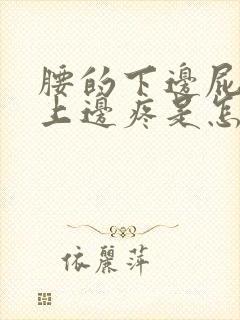 腰的下邊屁
上邊疼是怎
依麗萍